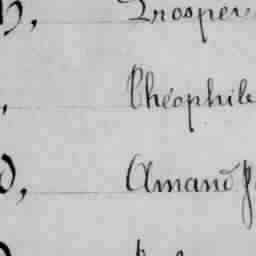 Prosper
Théophile
Amand